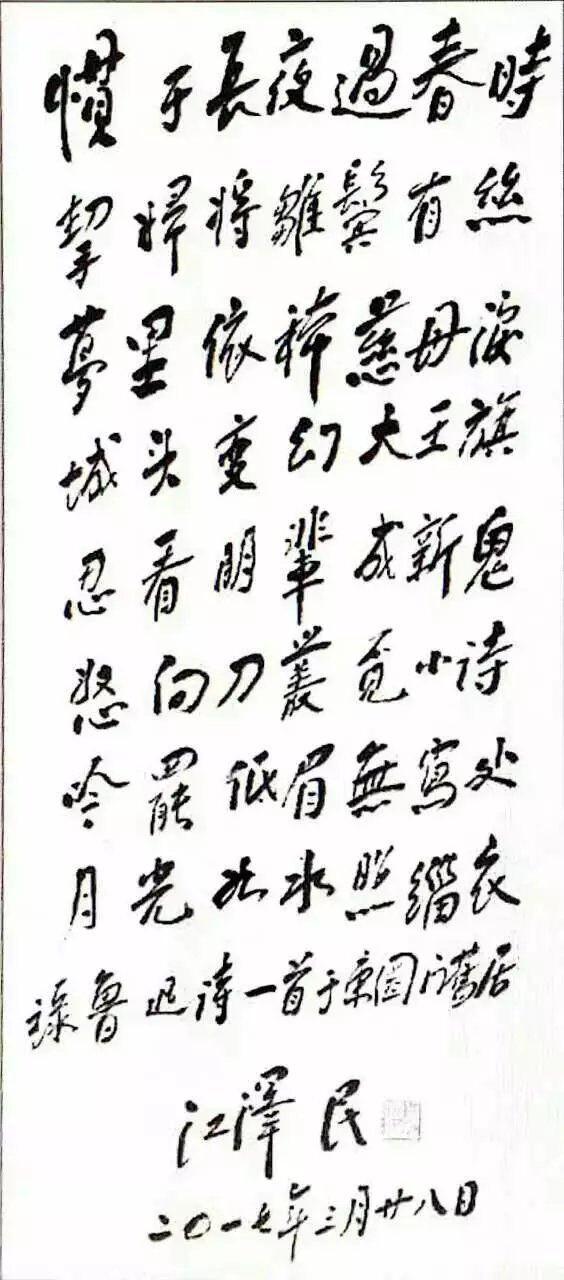 慣于長夜過春時
挈婦将雛鬢有絲
夢里依稀慈母淚
城头变幻大王旗
忍看朋輩成新鬼
怒向刀叢覓小诗
吟罷低眉無寫处
月光如水照緇衣
録魯迅诗一首于東圈门舊居
江澤民
二〇一七年三月廿八日